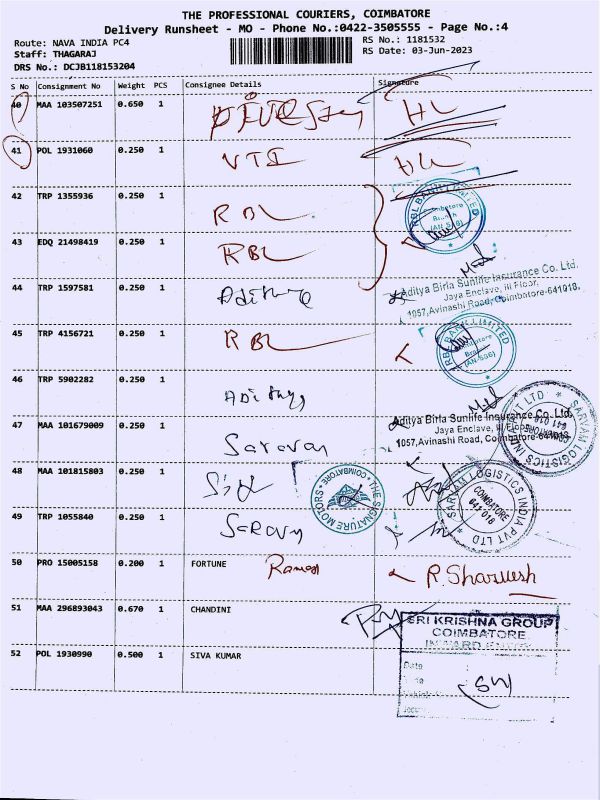 THE PROFESSIONAL COURIERS, COIMBATORE
Delivery Runsheet - MO - Phone No.:0422-3505555 - Page No.:4
Route: NAVA INDIA PC4 RS No.: 1181532
Staff: THAGARAJ RS Date: 03-Jun-2023
DRS No.: DCJB118153204
S No Consignment No Weight PCS Consignee Details Signature
40 MAA 103507251 0.650 1
41 POL 1931060 0.250 1 VTI
42 TRP 1355936 0.250 1 RBL
RBL BANK LIMITED
Coimbatore
Branch
(AN-506)
43 EDQ 21498419 0.250 1 RBL
44 TRP 1597581 0.250 1
Aditya Birla Sunlife Insurance Co. Ltd.
Jaya Enclave, III Floor,
1057, Avinashi Road, Coimbatore-641018.
45 TRP 4156721 0.250 1 RBL
RBL BANK LIMITED
Coimbatore
Branch
(AN-506)
46 TRP 5902282 0.250 1
Aditya Birla Sunlife Insurance Co. Ltd.
Jaya Enclave, III Floor,
1057, Avinashi Road, Coimbatore-641018.
SARVAM LOGISTICS INDIA PVT LTD
COIMBATORE
641 018
47 MAA 101679009 0.250 1 Saravan
48 MAA 101815803 0.250 1
THE SIGNATURE MOTORS
COIMBATORE
SARVAM LOGISTICS INDIA PVT LTD
COIMBATORE
641 018
49 TRP 1055840 0.250 1
50 PRO 15005158 0.200 1 FORTUNE Ramesh R. Sharvesh
51 MAA 296893043 0.670 1 CHANDINI
SRI KRISHNA GROUP
COIMBATORE
INWARD ENTRY
Date
52 POL 1930990 0.500 1 SIVA KUMAR